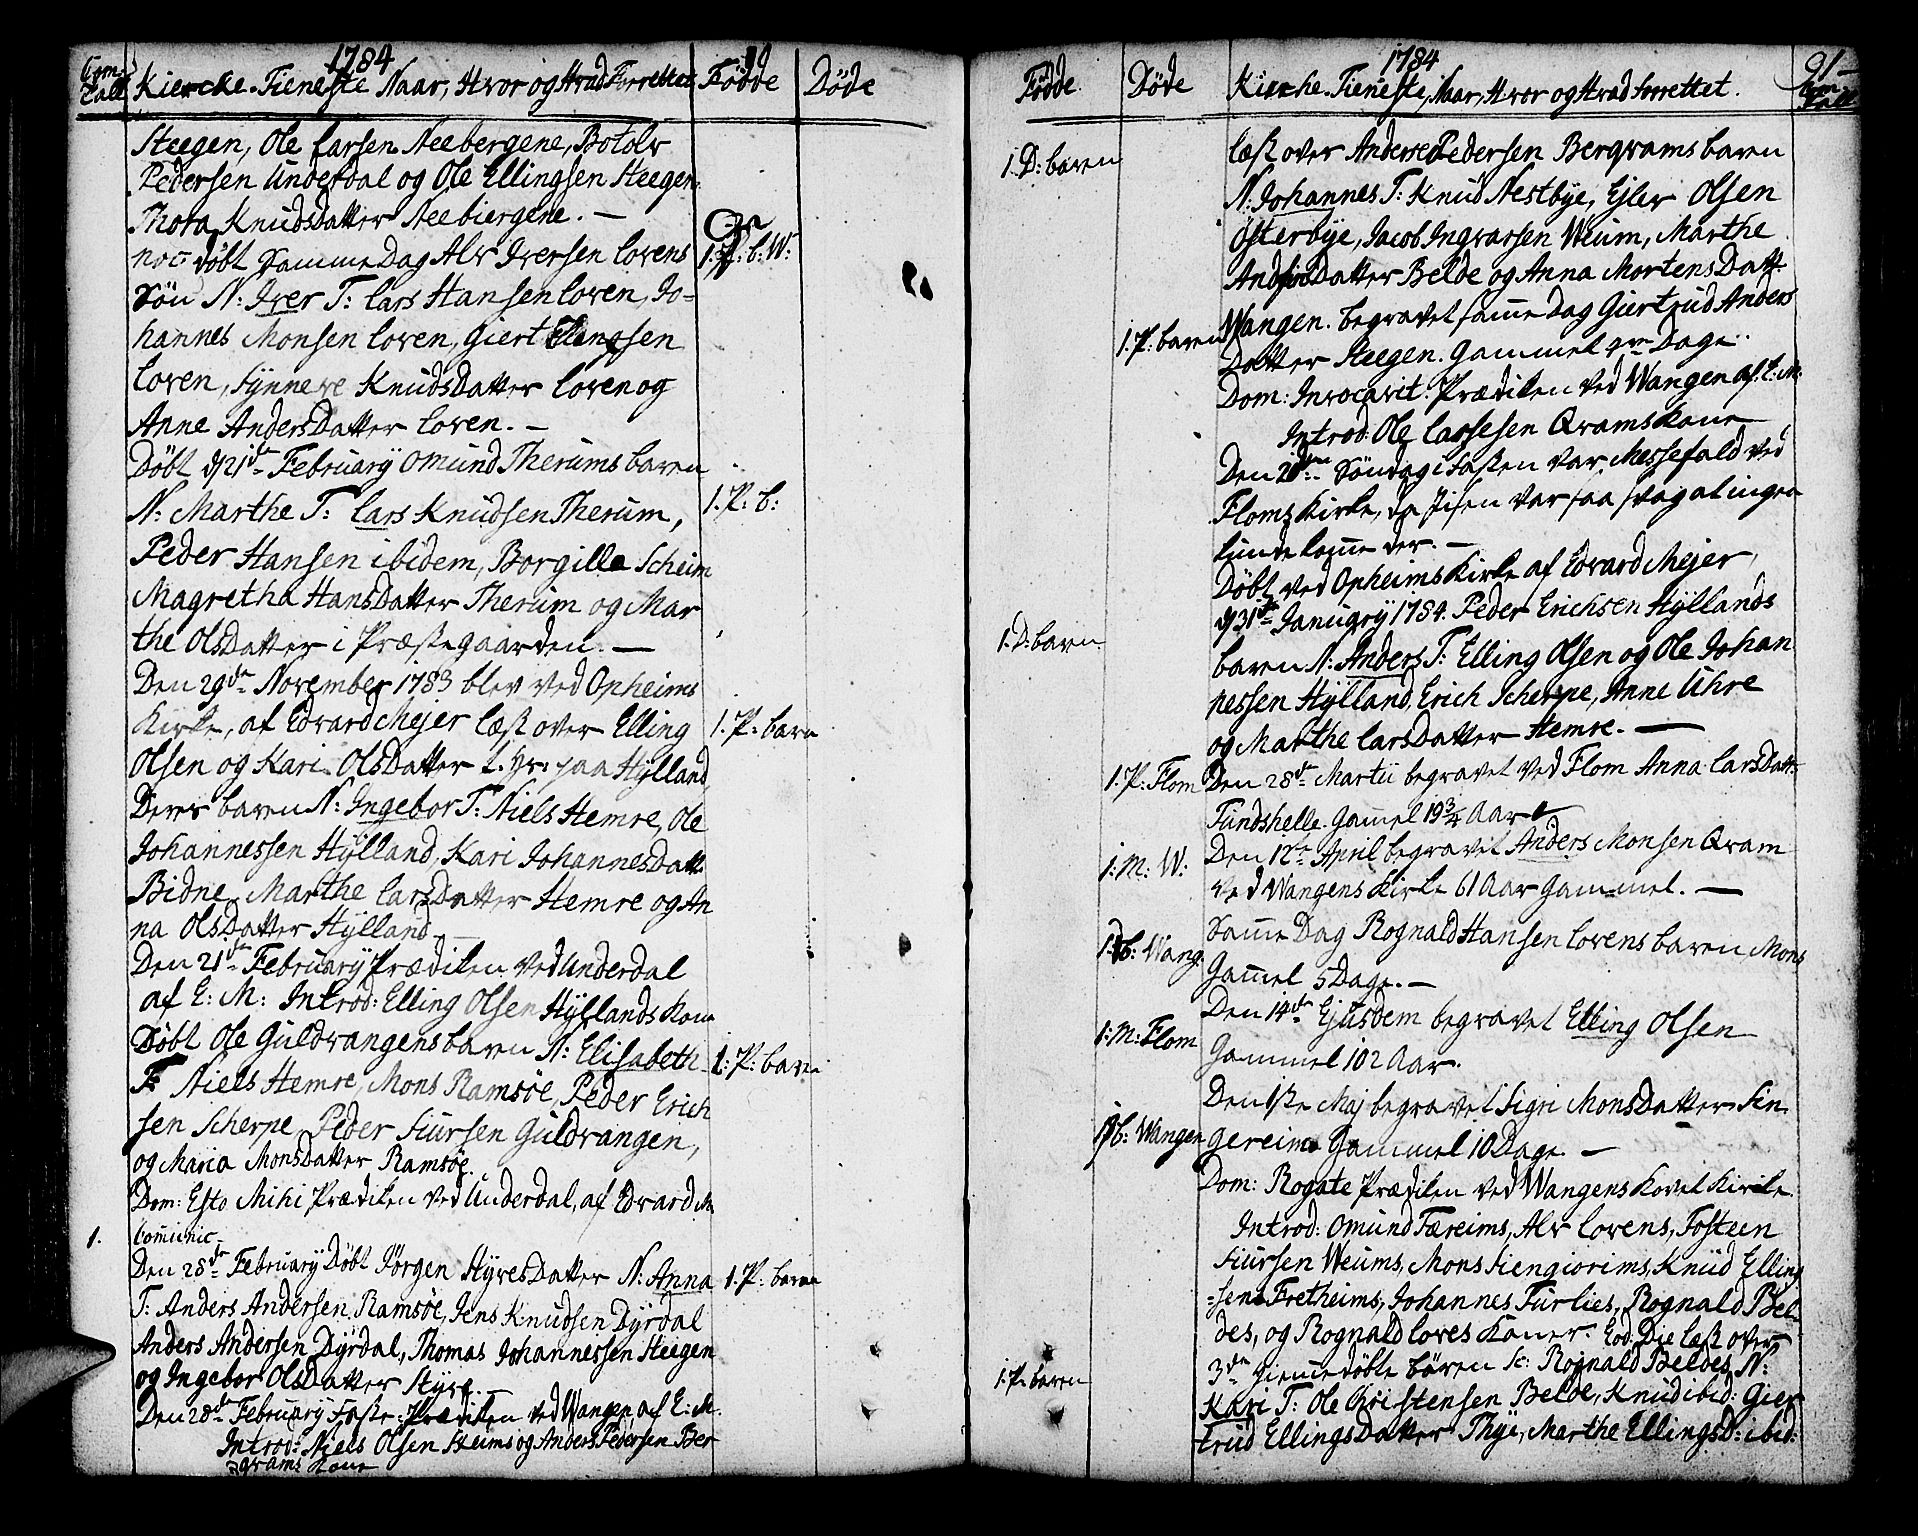 1784
Com: Tall Kiercke-Tieneste Naar, Hvor og Hvad Forrettet Födde Döde
Steegen, Ole Larsen Neebergene, Botolv
Pedersen Underdal og Ole Ellingsen Steegen
Thora Knudsdatter Neebiergene. —
noc döbt Samme Dag Alv Iversen Lovens 1. P: b: W:
Sön N: Iver T: Lars Hansen Loven, Jo-
hannes Monsen Loven, Giert
Loven, Synneve KnudsDatter Loven og
Anne AndersDatter Loven. —
Döbt d 21de February Omund Therums barn
N: Marthe T: Lars Knudsen Therum, 1. P. b:
Peder Hansen ibidem, Borgilla Scheim
Magretha HansDatter Therum og Mar
the OlsDatter i Præstegaarden. —
Den 29de November 1783 blev ved Opheims
Kirke, af Edvard Mejer læst over Elling 1. P: barn
Olsen og Kari OlsDatter paa Hylland
Deres barn N: Ingebor T: Niels Hemre, Ole
Johannessen Hylland, Kari JohannesDatt:
Bidne, Marthe LarsDatter Hemre og An
na OlsDatter Hylland —
Den 21de February Prædiken ved Underdal
af E: M: Introd: Elling Olsen Hyllands Kone
Döbt Ole Guldvangens barn N: Elisabeth 1: P: barn
T: Niels Hemre, Mons Ramsöe, Peder Erich
sen Scherpe, Peder Siursen Guldvangen,
og Maria MonsDatter Ramsöe.
Dom: Esto Mihi Prædiken ved Underdal, af Edvard M
1. Comunic
Den 28de February Döbt Jörgen HyresDatter N: Anna 1. P: barn
T: Anders Andersen Ramsöe, Jens Knudsen Dyrdal
Anders Andersen Dyrdal, Thomas Johannessen Steegen
og Ingebor OlsDatter Styve. —
Den 28de February Faste-Prædiken ved Wangen af E: M.
Introd: Niels Olsen Steims og Anders Pedersen Ber
qvams Kone
1784 91
Födde Döde Kircke-Tieneste, Naar, Hvor og Hvad forrettet. Com: Tall
1. D: barn læst over Anders Pedersen Berqvams barn
N: Johannes T: Knud Nestbye, Ejler Olsen
Österbye, Jacob Ingvarsen Wium, Marthe
Datter Belde og Anna MortensDatt:
1. P: barn Wangen. begravet samme Dag Giertrud Anders
Datter Steegen. Gammel Dage.
Dom: Invocavit. Prædiken ved Wangen af E: M:
Introd: Ole Lassesen Qvams Kone
Den Söndag i Fasten var Messefald ved
Floms Kirke, da Jisen var saa svag at ingen
kunde komme der. —
Döbt ved Opheims Kirke af Edvard Mejer,
1. D: barn d 31te January 1784. Peder Erichsen Hyllands
barn N: Anders T: Elling Olsen og Ole Johan
nessen Hylland, Erich Scherpe, Anne Uhre
og Marthe LarsDatter Hemre. —
1. P: Flom Den 28de Martii begravet ved Flom Anna LarsDatt:
Fundshelle. Gamel 19 3/4 Aar
1: M: W: Den 12te April begravet Anders Monsen Qvam
ved Wangens Kirke 61 Aar Gammel. —
1. b: Wang. Samme Dag Rognald Hansen Lovens barn Mons
Gamel 5 Dage. —
1: M: Flom Den 14de Ejusdem begravet Elling Olsen
Gammel 102 Aar.
Den 1ste Maj begravet Sigri MonsDatter Sin
b: Wangen gereim Gammel 10 Dage. —
Dom: Rogate Prædiken ved Wangens Hovet Kirke
Introd: Omund Færeims, Alv Lovens, Tosteen
Siursen Weums, Mons Siengiorims, Knud Elling
-sens Fretheims, Johannes Turlies, Rognald Bel-
des, og Rognald Loves Koner. Eod: Die læst over
1. P: barn 3de Hiemmedöbte bören sc: Rognald Beldes N:
Kari T: Ole Christensen Belde, Knud ibid: Gier
trud EllingsDatter Thye, Marthe EllingsD: ibid: